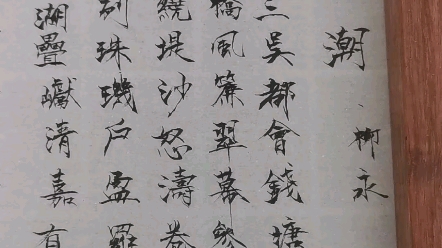 潮
柳永
三吳都會錢塘
橋風簾翠幕參
繞堤沙怒濤卷
列珠璣戶盈羅
湖疊巘清嘉有